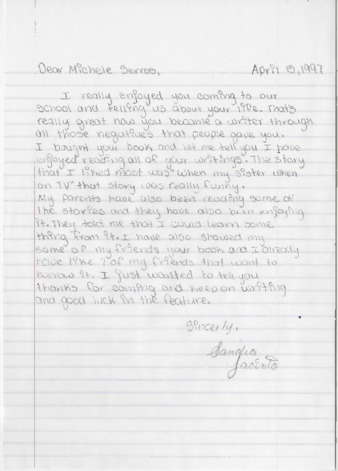 Dear Michele Serros, April 15, 1997
I really enjoyed you coming to our
school and telling us about your life. That's
really great how you became a writer through
all those negatives that people gave you.
I bought your book and let me tell you I have
enjoyed reading all of your writings. The story
that I liked most was "when my sister when
on TV" that story was really funny.
My parents have also been reading some of
the stories and they have also been enjoying
it. They told me that I could learn some
thing from it. I have also showed my
some of my friends your book and I already
have like of my friends that want to
borrow it. I just wanted to tell you
thanks for coming and keep on writing
and good luck in the feature.
Sincerly,
Sandra
Jacinto